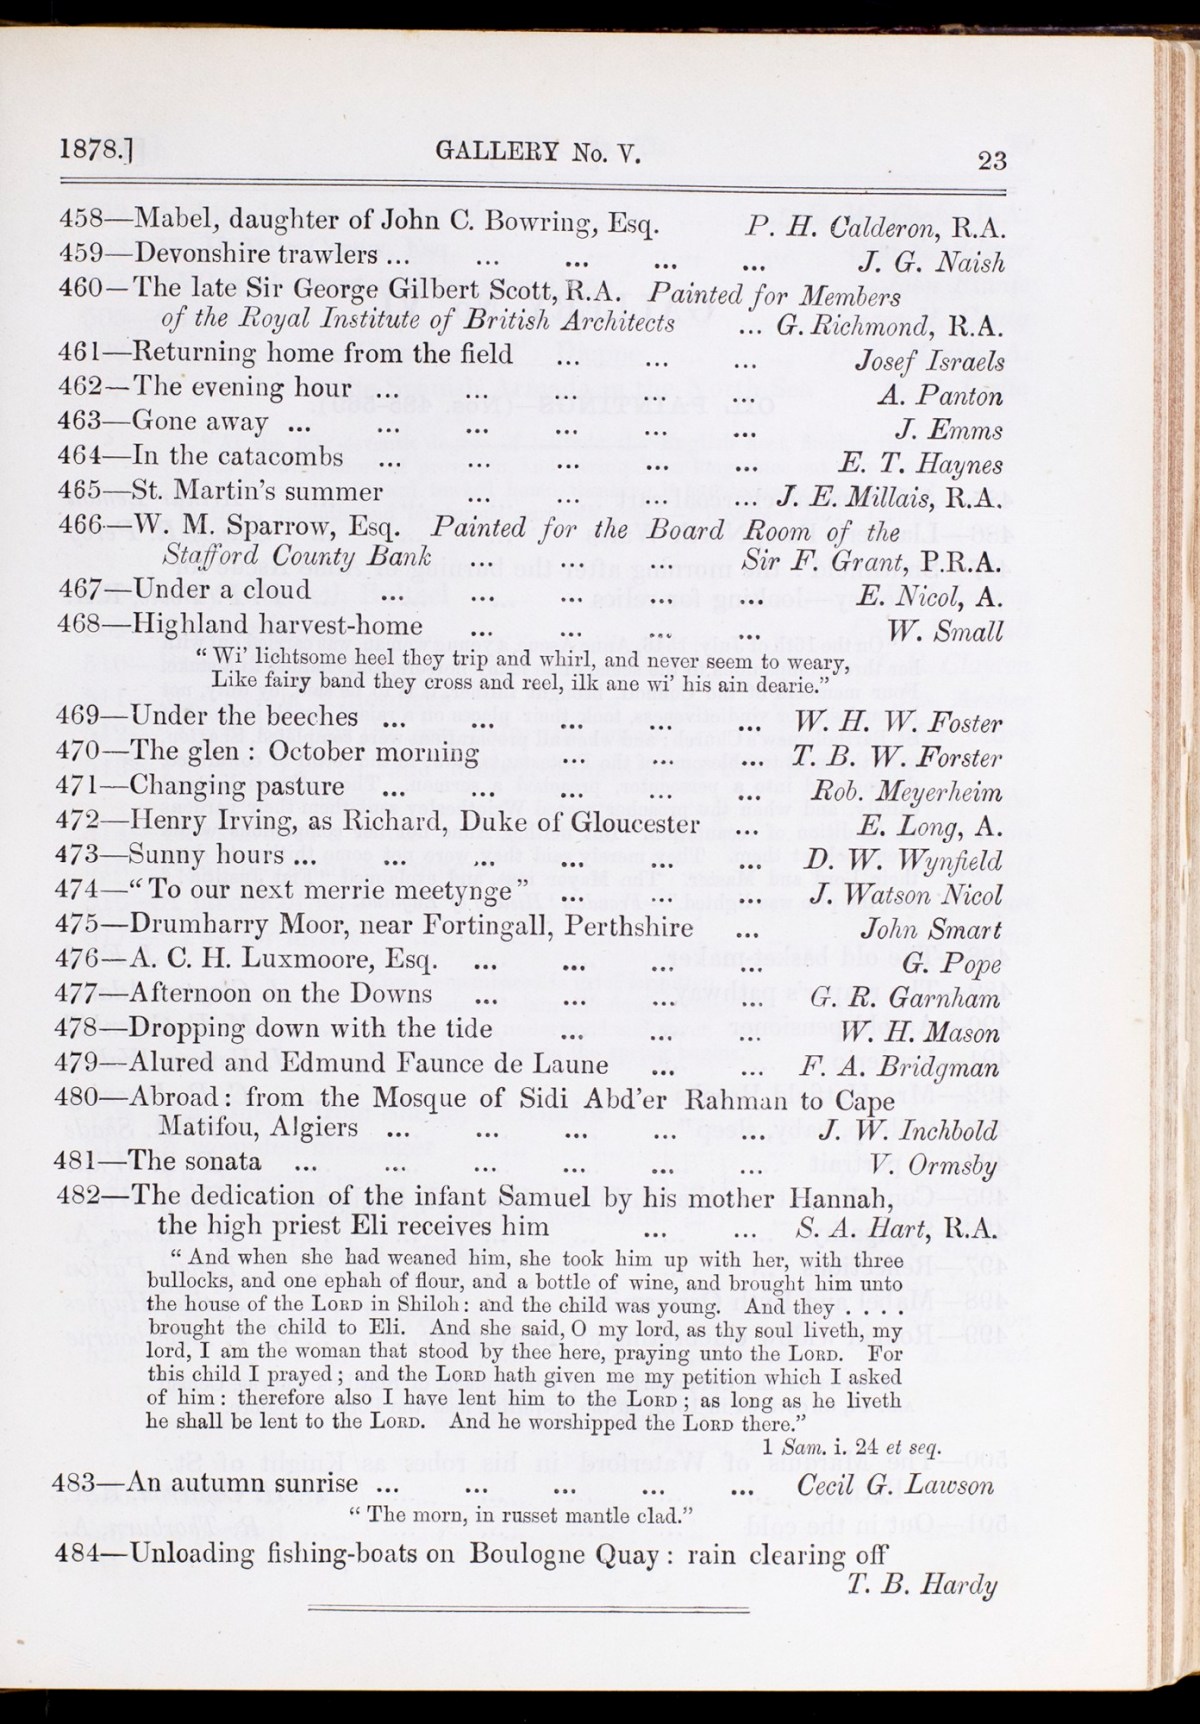 1878.] GALLERY No. V. 23
458—Mabel, daughter of John C. Bowring, Esq. P. H. Calderon, R.A.
459—Devonshire trawlers ... ... ... ... ... J. G. Naish
460—The late Sir George Gilbert Scott, R.A. Painted for Members
of the Royal Institute of British Architects ... G. Richmond, R.A.
461—Returning home from the field ... ... ... Josef Israels
462—The evening hour ... ... ... ... ... A. Panton
463—Gone away ... ... ... ... ... ... J. Emms
464—In the catacombs ... ... ... ... ... E. T. Haynes
465—St. Martin's summer ... ... ... ... J. E. Millais, R.A.
466—W. M. Sparrow, Esq. Painted for the Board Room of the
Stafford County Bank ... ... ... Sir F. Grant, P.R.A.
467—Under a cloud ... ... ... ... ... E. Nicol, A.
468—Highland harvest-home ... ... ... ... W. Small
“ Wi' lichtsome heel they trip and whirl, and never seem to weary,
Like fairy band they cross and reel, ilk ane wi' his ain dearie.”
469—Under the beeches ... ... ... ... ... W. H. W. Foster
470—The glen : October morning ... ... ... T. B. W. Forster
471—Changing pasture ... ... ... ... ... Rob. Meyerheim
472—Henry Irving, as Richard, Duke of Gloucester ... E. Long, A.
473—Sunny hours ... ... ... ... ... ... D. W. Wynfield
474—“ To our next merrie meetynge ” ... ... ... J. Watson Nicol
475—Drumharry Moor, near Fortingall, Perthshire ... John Smart
476—A. C. H. Luxmoore, Esq. ... ... ... ... G. Pope
477—Afternoon on the Downs ... ... ... ... G. R. Garnham
478—Dropping down with the tide ... ... ... W. H. Mason
479—Alured and Edmund Faunce de Laune ... ... F. A. Bridgman
480—Abroad : from the Mosque of Sidi Abd'er Rahman to Cape
Matifou, Algiers ... ... ... ... ... J. W. Inchbold
481—The sonata ... ... ... ... ... ... V. Ormsby
482—The dedication of the infant Samuel by his mother Hannah,
the high priest Eli receives him ... ... S. A. Hart, R.A.
“ And when she had weaned him, she took him up with her, with three
bullocks, and one ephah of flour, and a bottle of wine, and brought him unto
the house of the LORD in Shiloh : and the child was young. And they . . . .
brought the child to Eli. And she said, O my lord, as thy soul liveth, my
lord, I am the woman that stood by thee here, praying unto the LORD. For
this child I prayed ; and the LORD hath given me my petition which I asked
of him : therefore also I have lent him to the LORD ; as long as he liveth
he shall be lent to the LORD. And he worshipped the LORD there.”
1 Sam. i. 24 et seq.
483—An autumn sunrise ... ... ... ... ... Cecil G. Lawson
“ The morn, in russet mantle clad.”
484—Unloading fishing-boats on Boulogne Quay : rain clearing off
T. B. Hardy